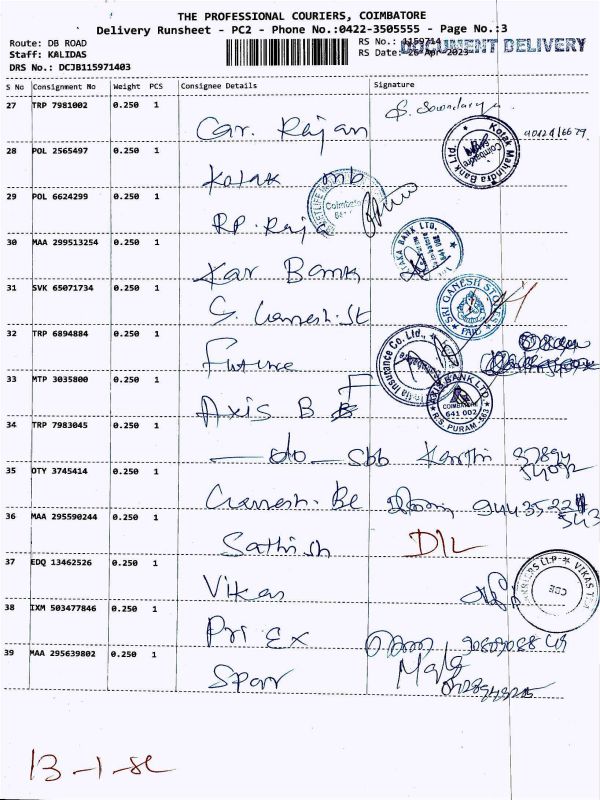 THE PROFESSIONAL COURIERS, COIMBATORE
Delivery Runsheet - PC2 - Phone No.:0422-3505555 - Page No.:3
Route: DB ROAD
Staff: KALIDAS
DRS No.: DCJB115971403
RS No.: 1159714
RS Date: 26-Apr-2023
DOCUMENT DELIVERY
S No Consignment No Weight PCS Consignee Details Signature
27 TRP 7981002 0.250 1 Car. Rajan S. Soundarya
28 POL 2565497 0.250 1 Kotak mb Kotak Mahindra Bank Ltd. Coimbatore
29 POL 6624299 0.250 1 RP. Raja
30 MAA 299513254 0.250 1 Kar Bank
31 SVK 65071734 0.250 1 S. Ganesh. St SRI GANESH STORES
32 TRP 6894884 0.250 1 Future India Insurance Co. Ltd.,
33 MTP 3035800 0.250 1 Axis B AXIS BANK LTD. COIMBATORE 641 002 R.S. PURAM-563
34 TRP 7983045 0.250 1 do Sbb Karthi
35 OTY 3745414 0.250 1 Ganesh. Be
36 MAA 295590244 0.250 1 Sathish D/L
37 EDQ 13462526 0.250 1 Vikas LLP VIKAS CBE
38 IXM 503477846 0.250 1 Pri Ex
39 MAA 295639802 0.250 1 Sparr